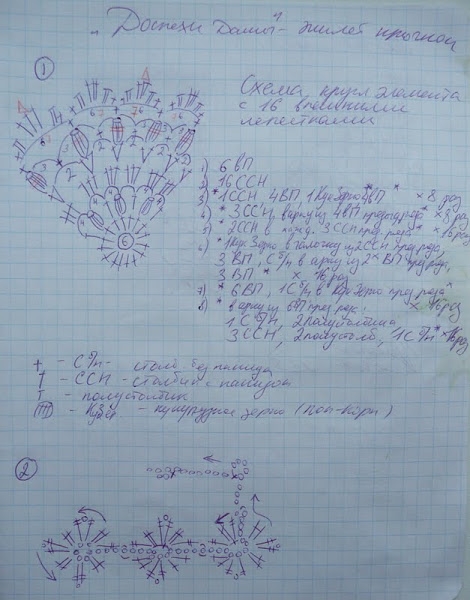 "Доспехи Дамы" - жилет крючком
1
Схема кругл элемента
с 16 внешними
лепестками
1) 6 ВП
2) 16 ССН
3) * 1ССН, 4ВП, 1КукЗерно, 4ВП * × 8 раз
4) * 3ССН, в арку из 4ВП пред ряда * × 8 раз
5) * 2ССН в кажд. 3ССН пред. ряда * × 16 раз
6) * 1Кук Зерно в галочку из 2ССН пред ряда,
3 ВП, Сб/н в арку из 2х ВП пред ряда,
3ВП * × 16 раз
7) * 6 ВП, 1Сб/н в Кук Зерно пред ряда * × 16 раз
8) * в арку из 6ВП пред. ряда:
1Сб/н, 2полустолбика
3ССН, 2полустолб, 1Сб/н * × 16 раз
+ - Сб/н - столб. без накида
† - ССН - столбик с накидом
Т - полустолбик
- кукурузное зерно (поп-корн)
2